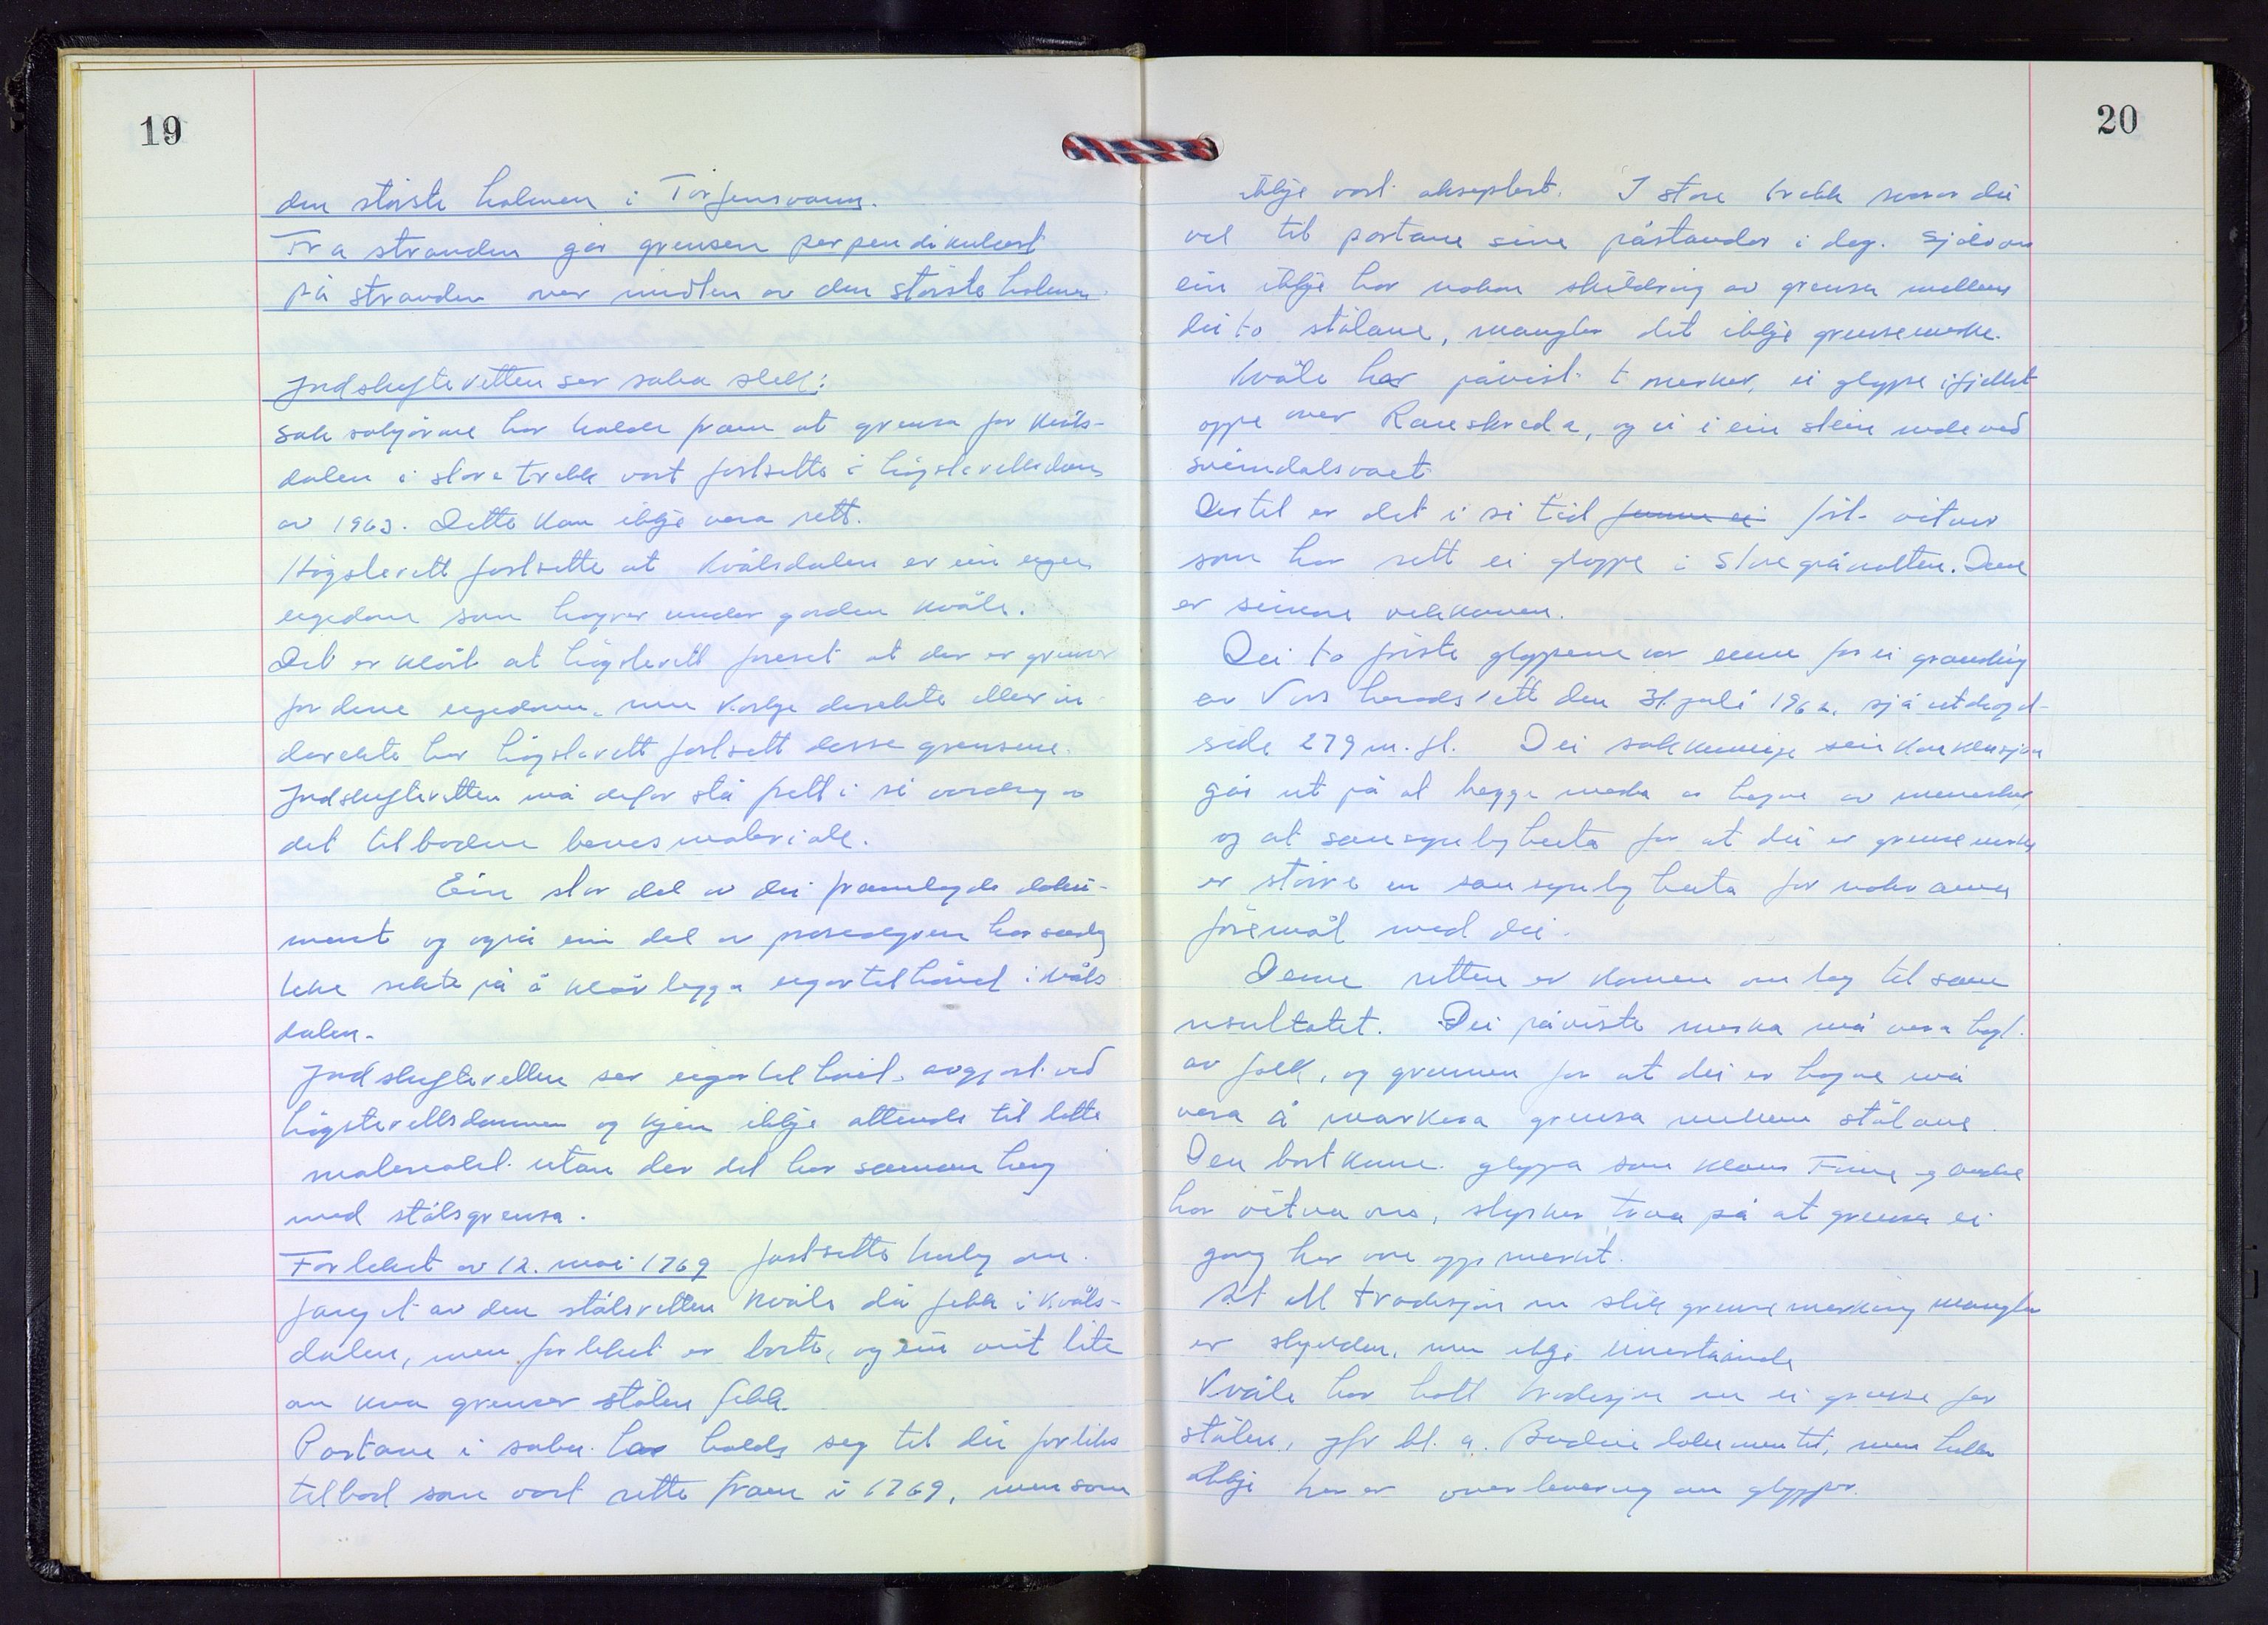 19
den største holmen i Torfinnsvann.
Fra stranden går grensen perpendikulært
på stranden over midten av den største holmen.
Jordskifteretten ser saka slik:
Saksøkjarane har halde fram at grensa for Kvåls-
dalen i store trekk vart fastsette i högsterettsdom
av 1963. Dette kan ikkje vera rett.
Högsterett fastsette at Kvålsdalen er ein eigen
eigedom som høyrer under garden Kvåle.
Det er klårt at högsterett foreset at der er grenser
for denne eigedom, men korkje direkte eller in-
direkte har högsterett fastsett desse grensene.
Jordskifteretten må difor stå fritt i si vurdering av
det tilbodne bevismateriale.
Ein stor del av dei framlagde doku-
ment og også ein del av prosedyren har
sikta på å klårleggja eigartilhøvet i Kvåls
dalen.
Jordskifteretten ser eigartilhøvet avgjort ved
högsterettsdommen og kjem ikkje attende til dette
materialet utan der det har samanheng
med stølsgrensa.
Forliket av 12. mai 1769 fastsette om-
fanget av den stølsretten Kvåle då fekk i Kvåls-
dalen, men forliket er borte, og ein veit lite
om kva grenser stølen fekk.
Partane i saka har halde seg til dei forliks
tilbod som vart sette fram i 1769, men som
20
ikkje vart akseptert. I store trekk svarar dei
vel til partane sine påstandar i dag. Sjølv om
ein ikkje har nokon skildring av grensa mellom
dei to stølane, manglar det ikkje grensemerke.
Kvåle har påvist to merker, ei gloppe i fjellet
oppe over Raneskreda, og ei i ein stein nede ved
Sveindalsvaet
Dertil er det i si tid ført vitner
som har sett ei gloppe i Storegrånotten. Denne
er seinare vekkomen.
Dei to første gloppene var emne for ei gransking
av Voss heradsrett den 31. juli 1962, sjå utdraget
side 279 m. fl. Dei sakkunnige sein konklusjon
går ut på at begge merka er hogne av mennesker
og at sannsynlegheita for at dei er grensemerker
er større en sannsynlegheita for nokre anna
føremål med dei.
Denne retten er komen om lag til same
resultatet. Dei påviste merka må vera hogt
av folk, og grunnen for at dei er hogne må
vera å markera grensa mellom stølane.
Den bortkomne gloppa som Klaus Finne og andre
har vitna om, styrker trua på at grensa ei
gong har vore oppmerkt.
At all tradisjon om slik grensemerking manglar
er, men ikkje
Kvåle har hatt tradisjon om ei grense for
stølen, jfr bl. a. dokumentet, men heller
ikkje her er overlevering om glopper.